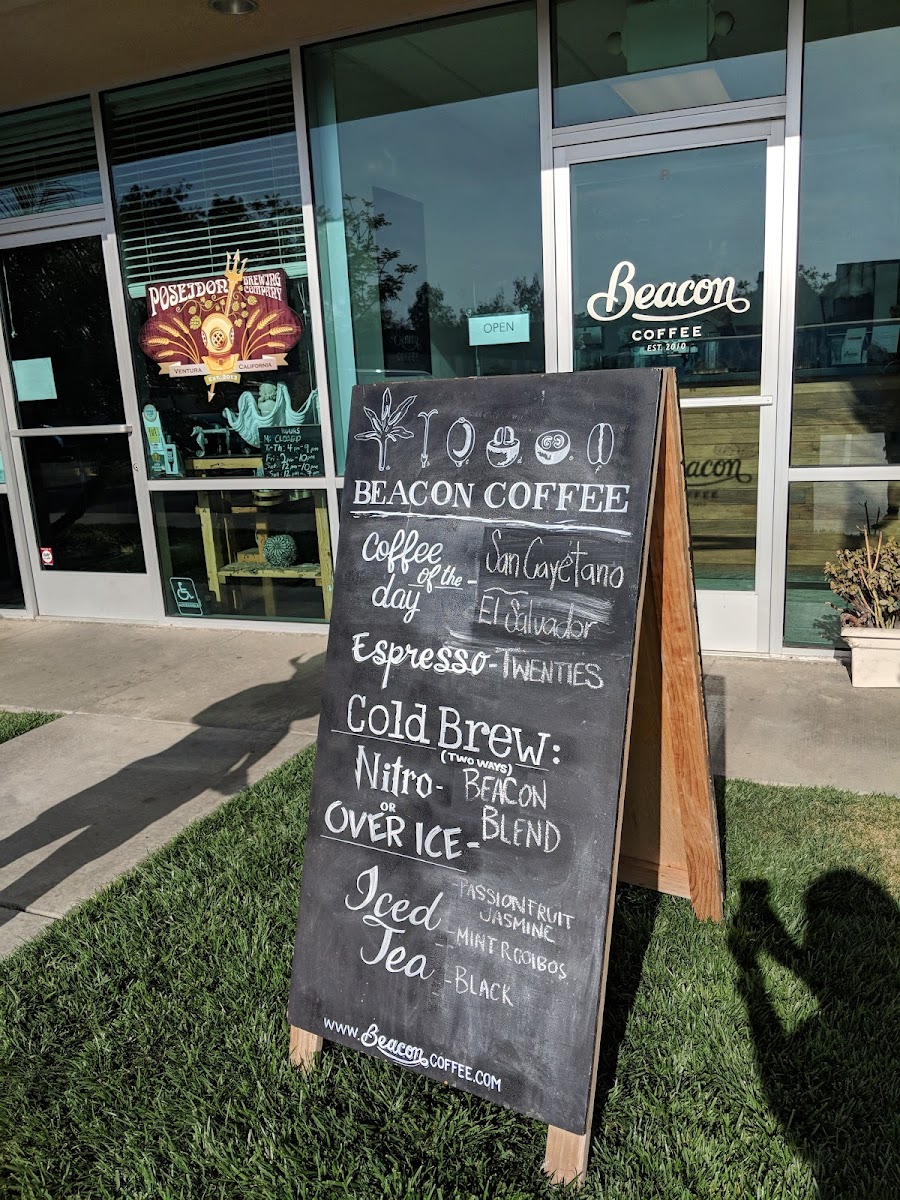 POSEIDON BREWING COMPANY
VENTURA CALIFORNIA
EST. 2013
HOURS
M: CLOSED
OPEN
Beacon
COFFEE
EST. 2010
BEACON COFFEE
Coffee of the day - San Cayetano
El Salvador
Espresso - TWENTIES
Cold Brew:
(TWO WAYS)
Nitro - BEACON
OR
OVER ICE - BLEND
Iced Tea
- PASSIONFRUIT
JASMINE
- MINT ROOIBOS
- BLACK
WWW.BeaconCOFFEE.COM